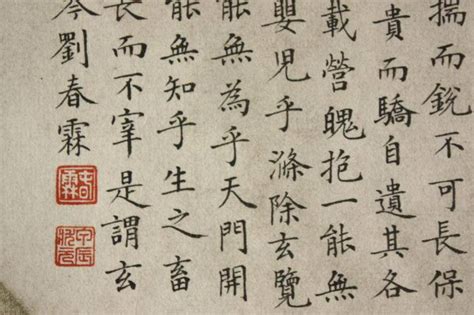 揣而銳不可長保
貴而驕自遺其各
載營魄抱一能無
嬰兒乎滌除玄覽
能無為乎天門開
能無知乎生之畜
長而不宰是謂玄
劉春霖
春霖
甲辰狀元